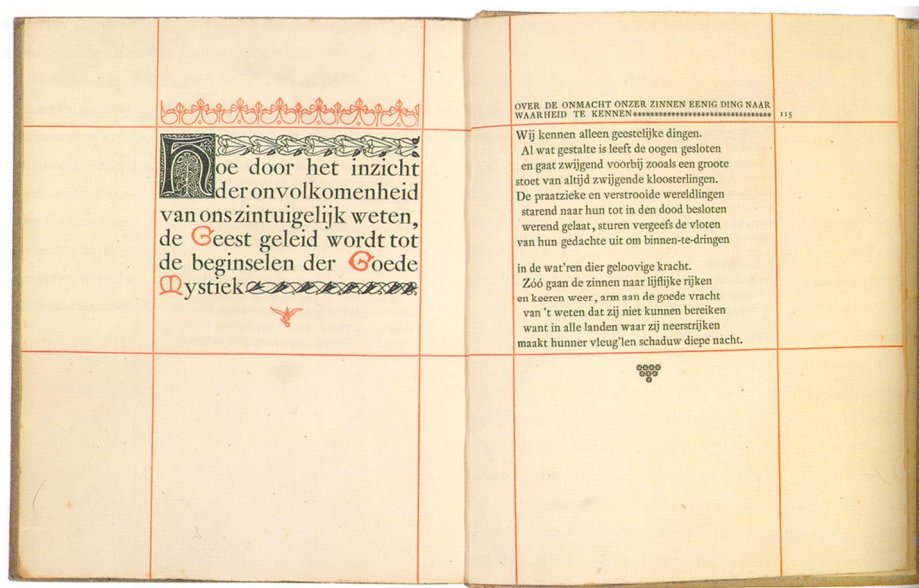 Hoe door het inzicht
der onvolkomenheid
van ons zintuigelijk weten,
de Geest geleid wordt tot
de beginselen der Goede
Mystiek
OVER DE ONMACHT ONZER ZINNEN EENIG DING NAAR
WAARHEID TE KENNEN 115
Wij kennen alleen geestelijke dingen.
Al wat gestalte is leeft de oogen gesloten
en gaat zwijgend voorbij zooals een groote
stoet van altijd zwijgende kloosterlingen.
De praatzieke en verstrooide wereldlingen
starend naar hun tot in den dood besloten
werend gelaat, sturen vergeefs de vloten
van hun gedachte uit om binnen-te-dringen
in de wat'ren dier geloovige kracht.
Zóó gaan de zinnen naar lijflijke rijken
en keeren weer, arm aan de goede vracht
van 't weten dat zij niet kunnen bereiken
want in alle landen waar zij neerstrijken
maakt hunner vleug'len schaduw diepe nacht.